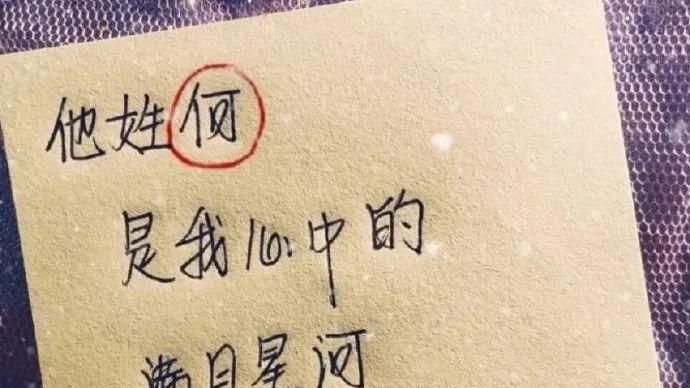 他姓何
是我心中的
满目星河